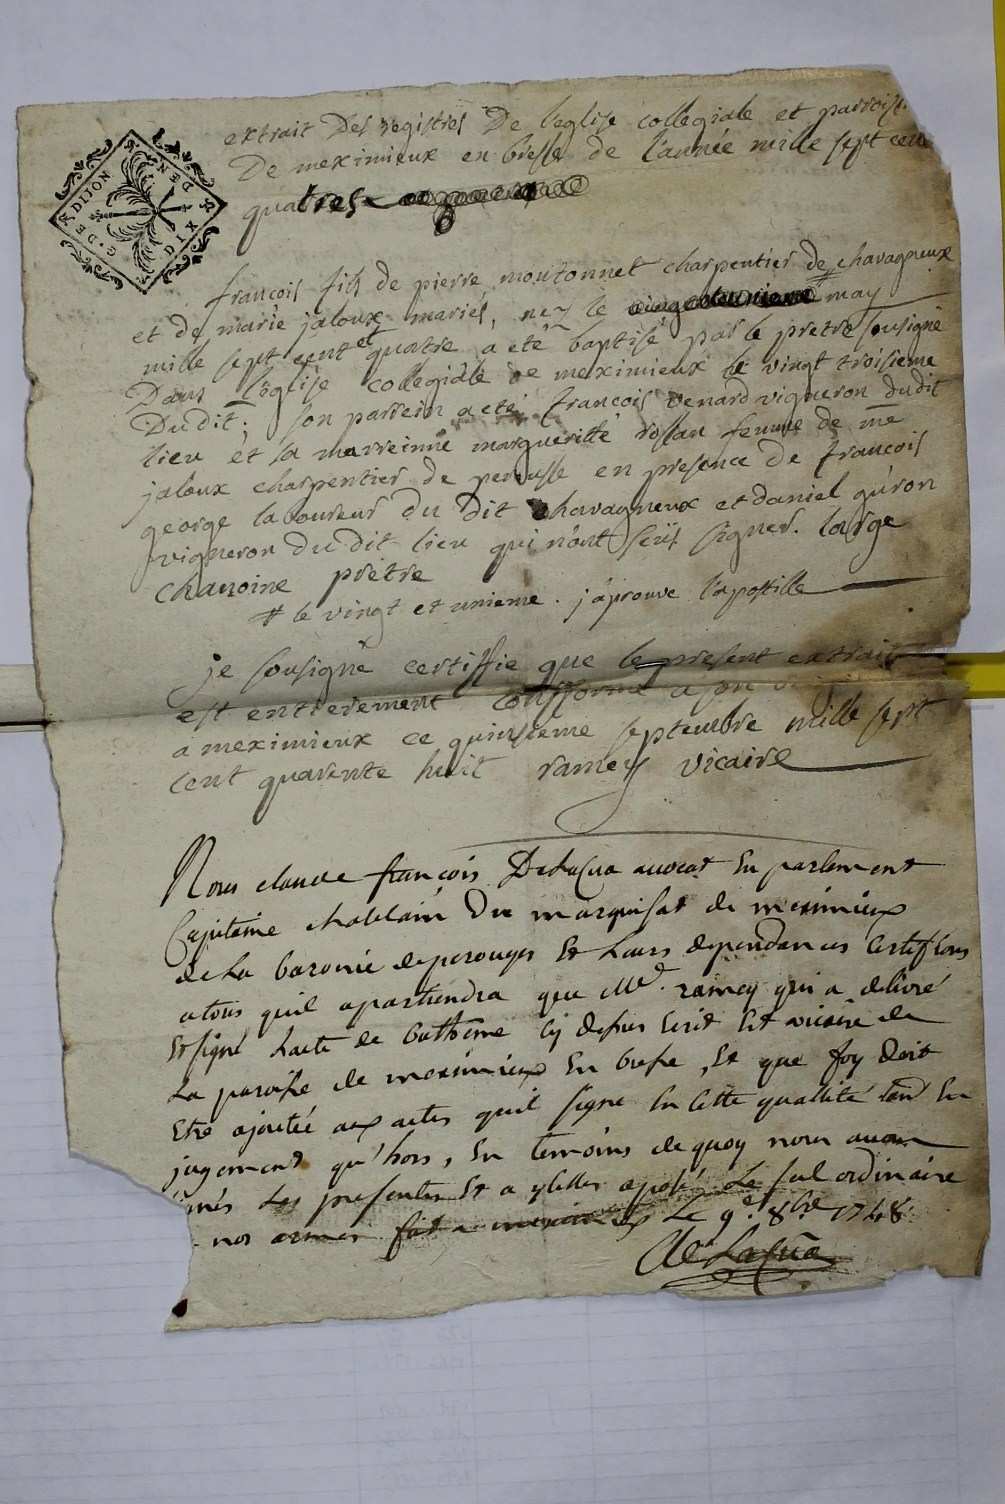 G. DE DIJON
DEN
SIX
extrait Des registres De l'eglise collegiale et parrois
De meximieux en bresse de l'année mille sept cent
quatres
francois fils de pierre moutonnet charpentier de chavagneux
et de marie jaloux mariés, nez le # may
mille sept cent et quatre a eté baptisé par le pretre sousigné
Dans l'eglise collegiale de meximieux le vingt troisieme
Dudit; son parrein a eté francois venard vigneron dudit
lieu et la marreinne margueritte rollan femme de me
jaloux charpentier de perousse en presence de francois
george laboureur du dit chavagneux et daniel guron
vigneron du dit lieu qui n'ont seüs signer. large
chanoine prètre
# le vingt et unieme. j'aprouve l'apostille
je sousigné certiffie que le present extrait
est entierement conforme a son
a meximieux ce quinsieme septembre mille sept
cent quarente huit ramey vicaire
Nous claude françois DeLaCua avocat En parlement
Capitaine chatelain Du marquisat de meximieux
de La baronie de perouges Et Leurs dependances Certiffions
a tous quil apartiendra que Me. ramey qui a delivré
Et signé Lacte de Batteme Cy dessus Ecrit Est vicaire de
La paroisse de meximieux En bresse, Et que foy doit
Etre ajoutée aux actes quil signe En Cette quallité tant En
jugement qu'hors, En temoins de quoy nous avons
Les presentes Et a ycelles aposé Le sel ordinaire
nos armes fait a meximieux Le 9e. 8bre 1748.
De LaCua